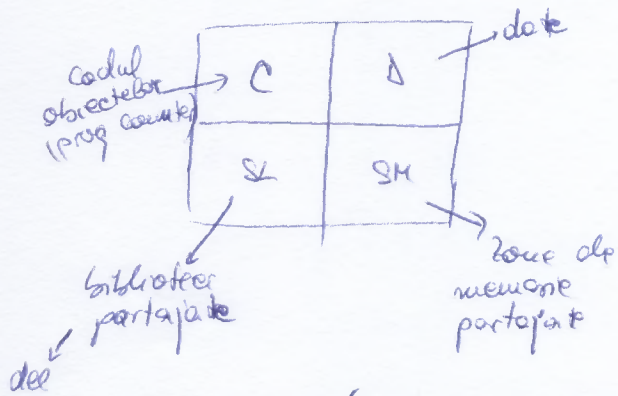 codul
obiectelor
(prog counter)
C
D
date
SL
SM
biblioteci
partajate
zone de
memorie
partajate
dll